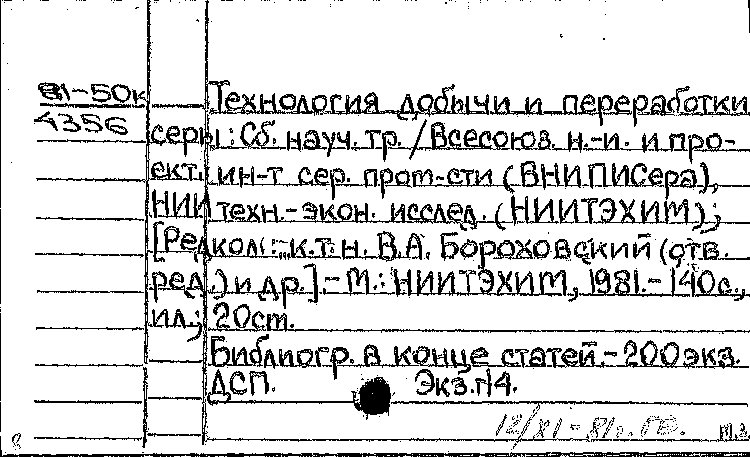 81-50к
4356
Технология добычи и переработки
серы: Сб. науч. тр. / Всесоюз. н.-и. и про-
ект. ин-т сер. пром-сти (ВНИПИСера),
НИИ техн.-экон. исслед. (НИИТЭХИМ);
[Редкол.: к.т.н. В.А. Бороховский (отв.
ред.) и др.].- М.: НИИТЭХИМ, 1981.- 140с.,
ил.; 20см.
Библиогр. в конце статей.- 200экз.
ДСП. Экз.№4.
12/XI-81г.
8